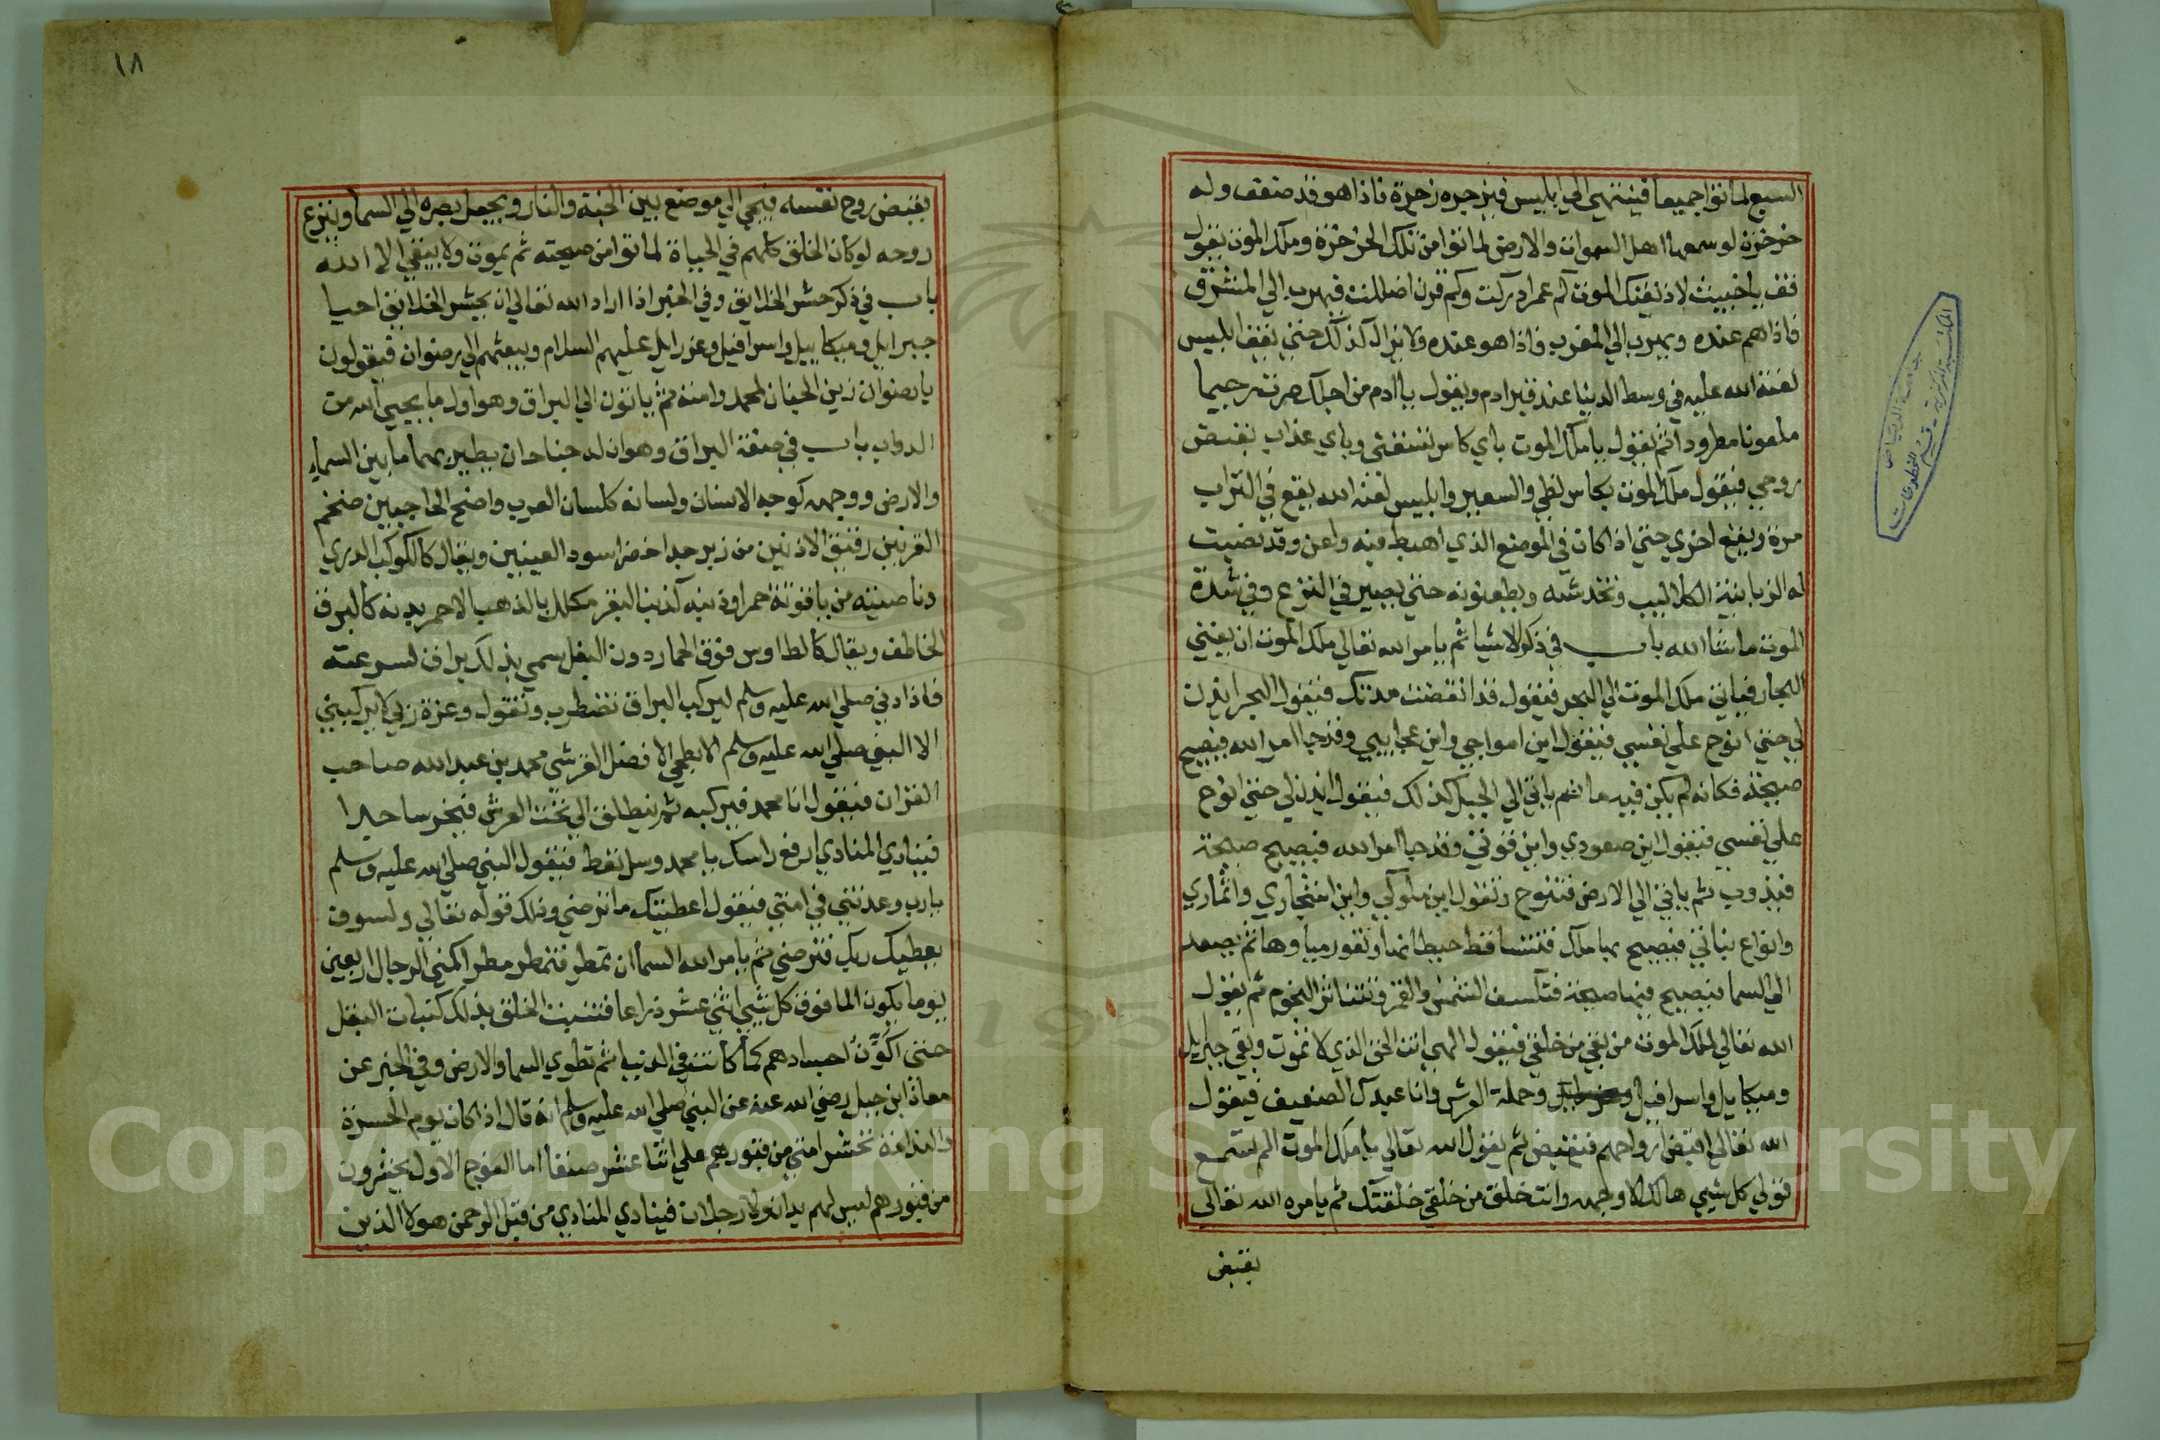 السبع لماتوا جميعا فينتهي الي ابليس فيزجره زجرة فاذا هو قد صعقف وله
خرخرة لو سمعها اهل السموات والارض لماتوا من تلك الخرخرة وملك الموت يقول
قف يا خبيث لاذيقنك الموت كم عمر ادركت وكم قرن اضللت فيهرب الي المشرق
فاذا هم عنده ويهرب الي المغرب فاذا هو عنده ولا يزال كذلك حتي يقف ابليس
لعنة الله عليه في وسط الدنيا عند قبر ادم ويقول يا ادم من اجلك صرت رجيما
ملعونا مطرودا ثم يقول يا ملك الموت باي كاس تسقني وباي عذاب تقبض
روحي فيقول ملك الموت بكاس لظي والسعير وابليس لعنه الله يقع في التراب
مرة ويقع اخري حتي اذا كان في الموضع الذي اهبط فيه ولعن وقد نصبت
له الزبانية الكلاليب وتخدشه ويطعنونه حتي يصير في النزع وفي شدة
الموت ما شا الله باب في ذكر الاشيا ثم يامر الله تعالي ملك الموت ان يفني
البحار فياتي ملك الموت الي البحر فيقول قد انقضت مدتك فيقول البحر ايذن
لي حتي انوح علي نفسي فيقول اين امواجي واين عجايبي وقد جا امر الله فيصيح
صيحة فكانه لم يكن فيه ما ثم ياتي الي الجبل كذلك فيقول ايذن لي حتي انوح
علي نفسي فيقول اين صعودي واين قوتي وقد جا امر الله فيصيح صيحة
فيذوب ثم ياتي الي الارض فتنوح وتقول اين ملوكي واين اشجاري واثماري
وانواع نباتي فيصيح بها ملك فتتساقط حيطانها وتغور مياوها ثم يصعد
الي السما فيصيح فيها صيحة فتكسف الشمس والقمر وتتناثر النجوم ثم يقول
الله تعالي لملك الموت من بقي من خلقي فيقول الهي انت الحي الذي لا تموت وبقي جبرايل
وميكاييل واسرافيل وحملة العرش وانا عبدك الضعيف فيقول
الله تعالي اقبض ارواحهم فيقبض ثم يقول الله تعالي يا ملك الموت الم تسمع
قولي كل شيي هالك الا وجهه وانت خلق من خلقي خلقتك ثم يامره الله تعالي
يقبض
١٨
يقبض روح نفسه فيجي الي موضع بين الجنة والنار ويجعل بصره الي السما وينزع
روحه لو كان الخلق كلهم في الحياة لماتوا من صيحته ثم يموت ولا يبقي الا الله
باب في ذكر حشر الخلايق وفي الخبر اذا اراد الله تعالي ان يحشر الخلايق احيا
جبرايل وميكاييل واسرافيل وعزرايل عليهم السلام ويبعثهم الي رضوان فيقولون
يا رضوان زين الجنان لمحمد وامته ثم ياتون الي البراق وهو اول ما يحيي الله من
الدواب باب في صفة البراق وهو ان له جناحان يطير بهما ما بين السماء
والارض ووجهه كوجه الانسان ولسانه كلسان العرب واضح الحاجبين ضخم
القرنين رقيق الاذنين من زبرجد اخضر اسود العينين ويقال كالكوكب الدري
وناصيته من ياقوتة حمرا وذنبه كذنب البقر مكلل بالذهب الاحمر بدنه كالبرق
الخاطف ويقال كالطاوس فوق الحمار دون البغل سمي بذلك براق لسرعته
فاذا دني صلي الله عليه وسلم ليركب البراق تضطرب وتقول وعزة ربي لا يركبني
الا النبي صلي الله عليه وسلم الابطحي الافضل القرشي محمد بن عبد الله صاحب
القران فيقول انا محمد فيركبه ثم ينطلق الي تحت العرش فيخر ساجدا
فينادي المنادي ارفع راسك يا محمد وسل تعط فيقول النبي صلي الله عليه وسلم
يا رب وعدتني في امتي فيقول اعطيتك ما ترضي وذلك قوله تعالي ولسوف
يعطيك ربك فترضي ثم يامر الله السما ان تمطر فتمطر مطر اكمني الرجال اربعين
يوما يكون الما فوق كل شيي اثني عشر ذراعا فتنبت الخلق بذلك كنبات البقل
حتي اكون اجسادهم كما كانت في الدنيا ثم تطوي السما والارض وفي الخبر عن
معاذ ابن جبل رضي الله عنه عن النبي صلي الله عليه وسلم انه قال اذا كان يوم الحسرة
والندامة تحشر امتي من قبورهم علي اثنا عشر صنفا اما الفوج الاول يحشرون
من قبورهم ليس لهم يدان ولا رجلان فينادي المنادي من قبل الرحمن هولا الذين
Copyright © King Saud University